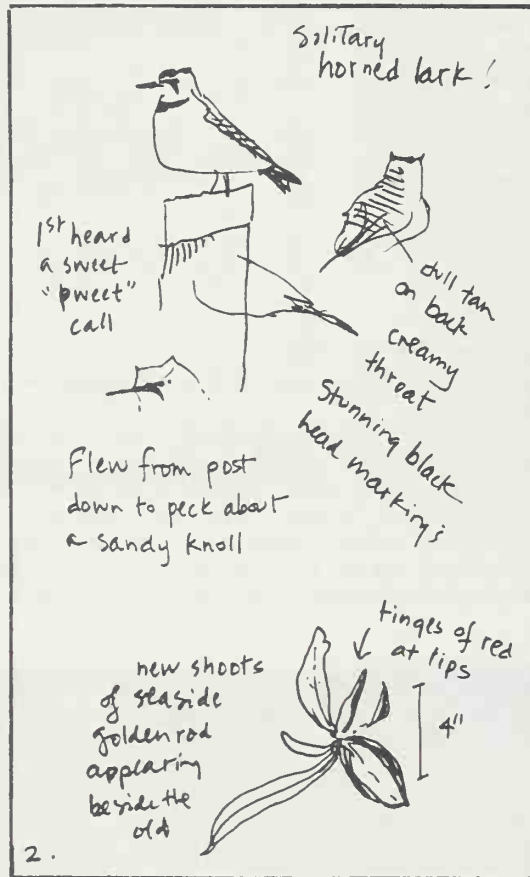 Solitary
horned lark!
1st heard
a sweet
"pweet"
call
dull tan
on back
creamy
throat
Stunning black
head markings
Flew from post
down to peck about
a sandy knoll
tinges of red
at tips
4"
new shoots
of seaside
goldenrod
appearing
beside the
old
2.